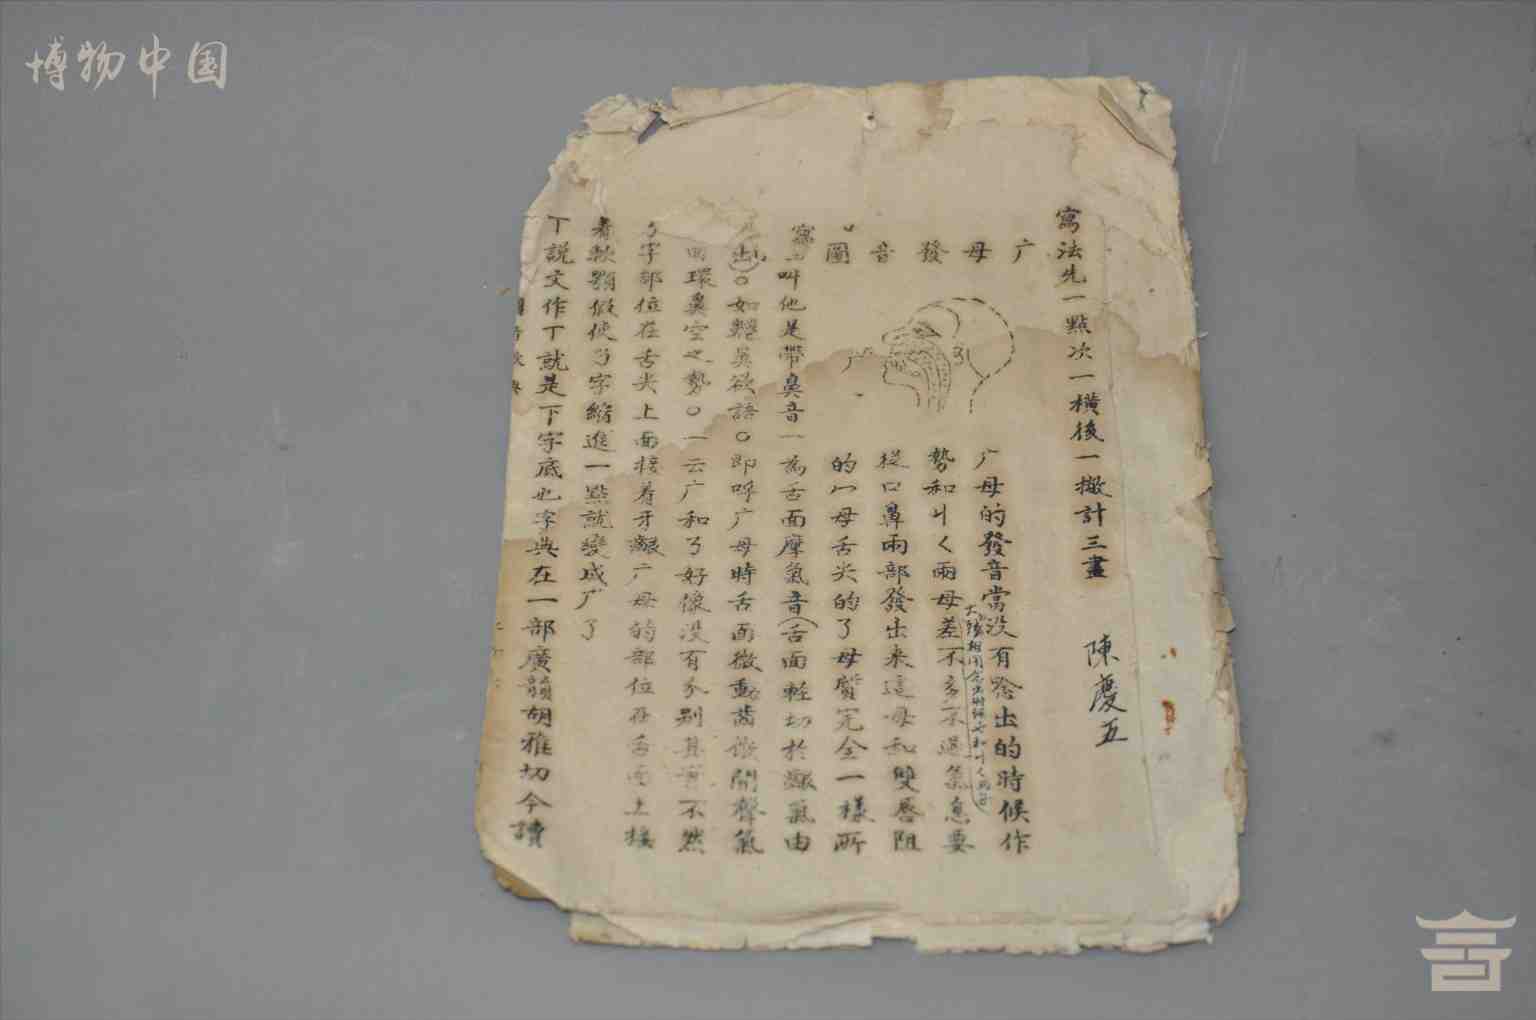 博物中国
寫法先一點次一橫後一撇計三畫
陳慶五
广母發音圖
广母的發音當没有唸出的時候作
勢和ㄐㄑ兩母差不多不過氣息要
從口鼻兩部發出來這母和雙唇阻
的ㄇ母舌尖的ㄋ母質完全一樣所
叫他是帶鼻音一為舌面摩氣音(舌面輕切於齶氣由
出)○如難莫欲語○即呼广母時舌面微動齒微開聲氣
環鼻空之勢○一云广和ㄋ好像没有分别其實不然
ㄋ字部位在舌尖上面接着牙齦广母的部位在舌面上接
着軟顎假使ㄋ字縮進一點就變成广了
丅説文作丅就是下字底也字典在一部廣韻胡雅切今讀